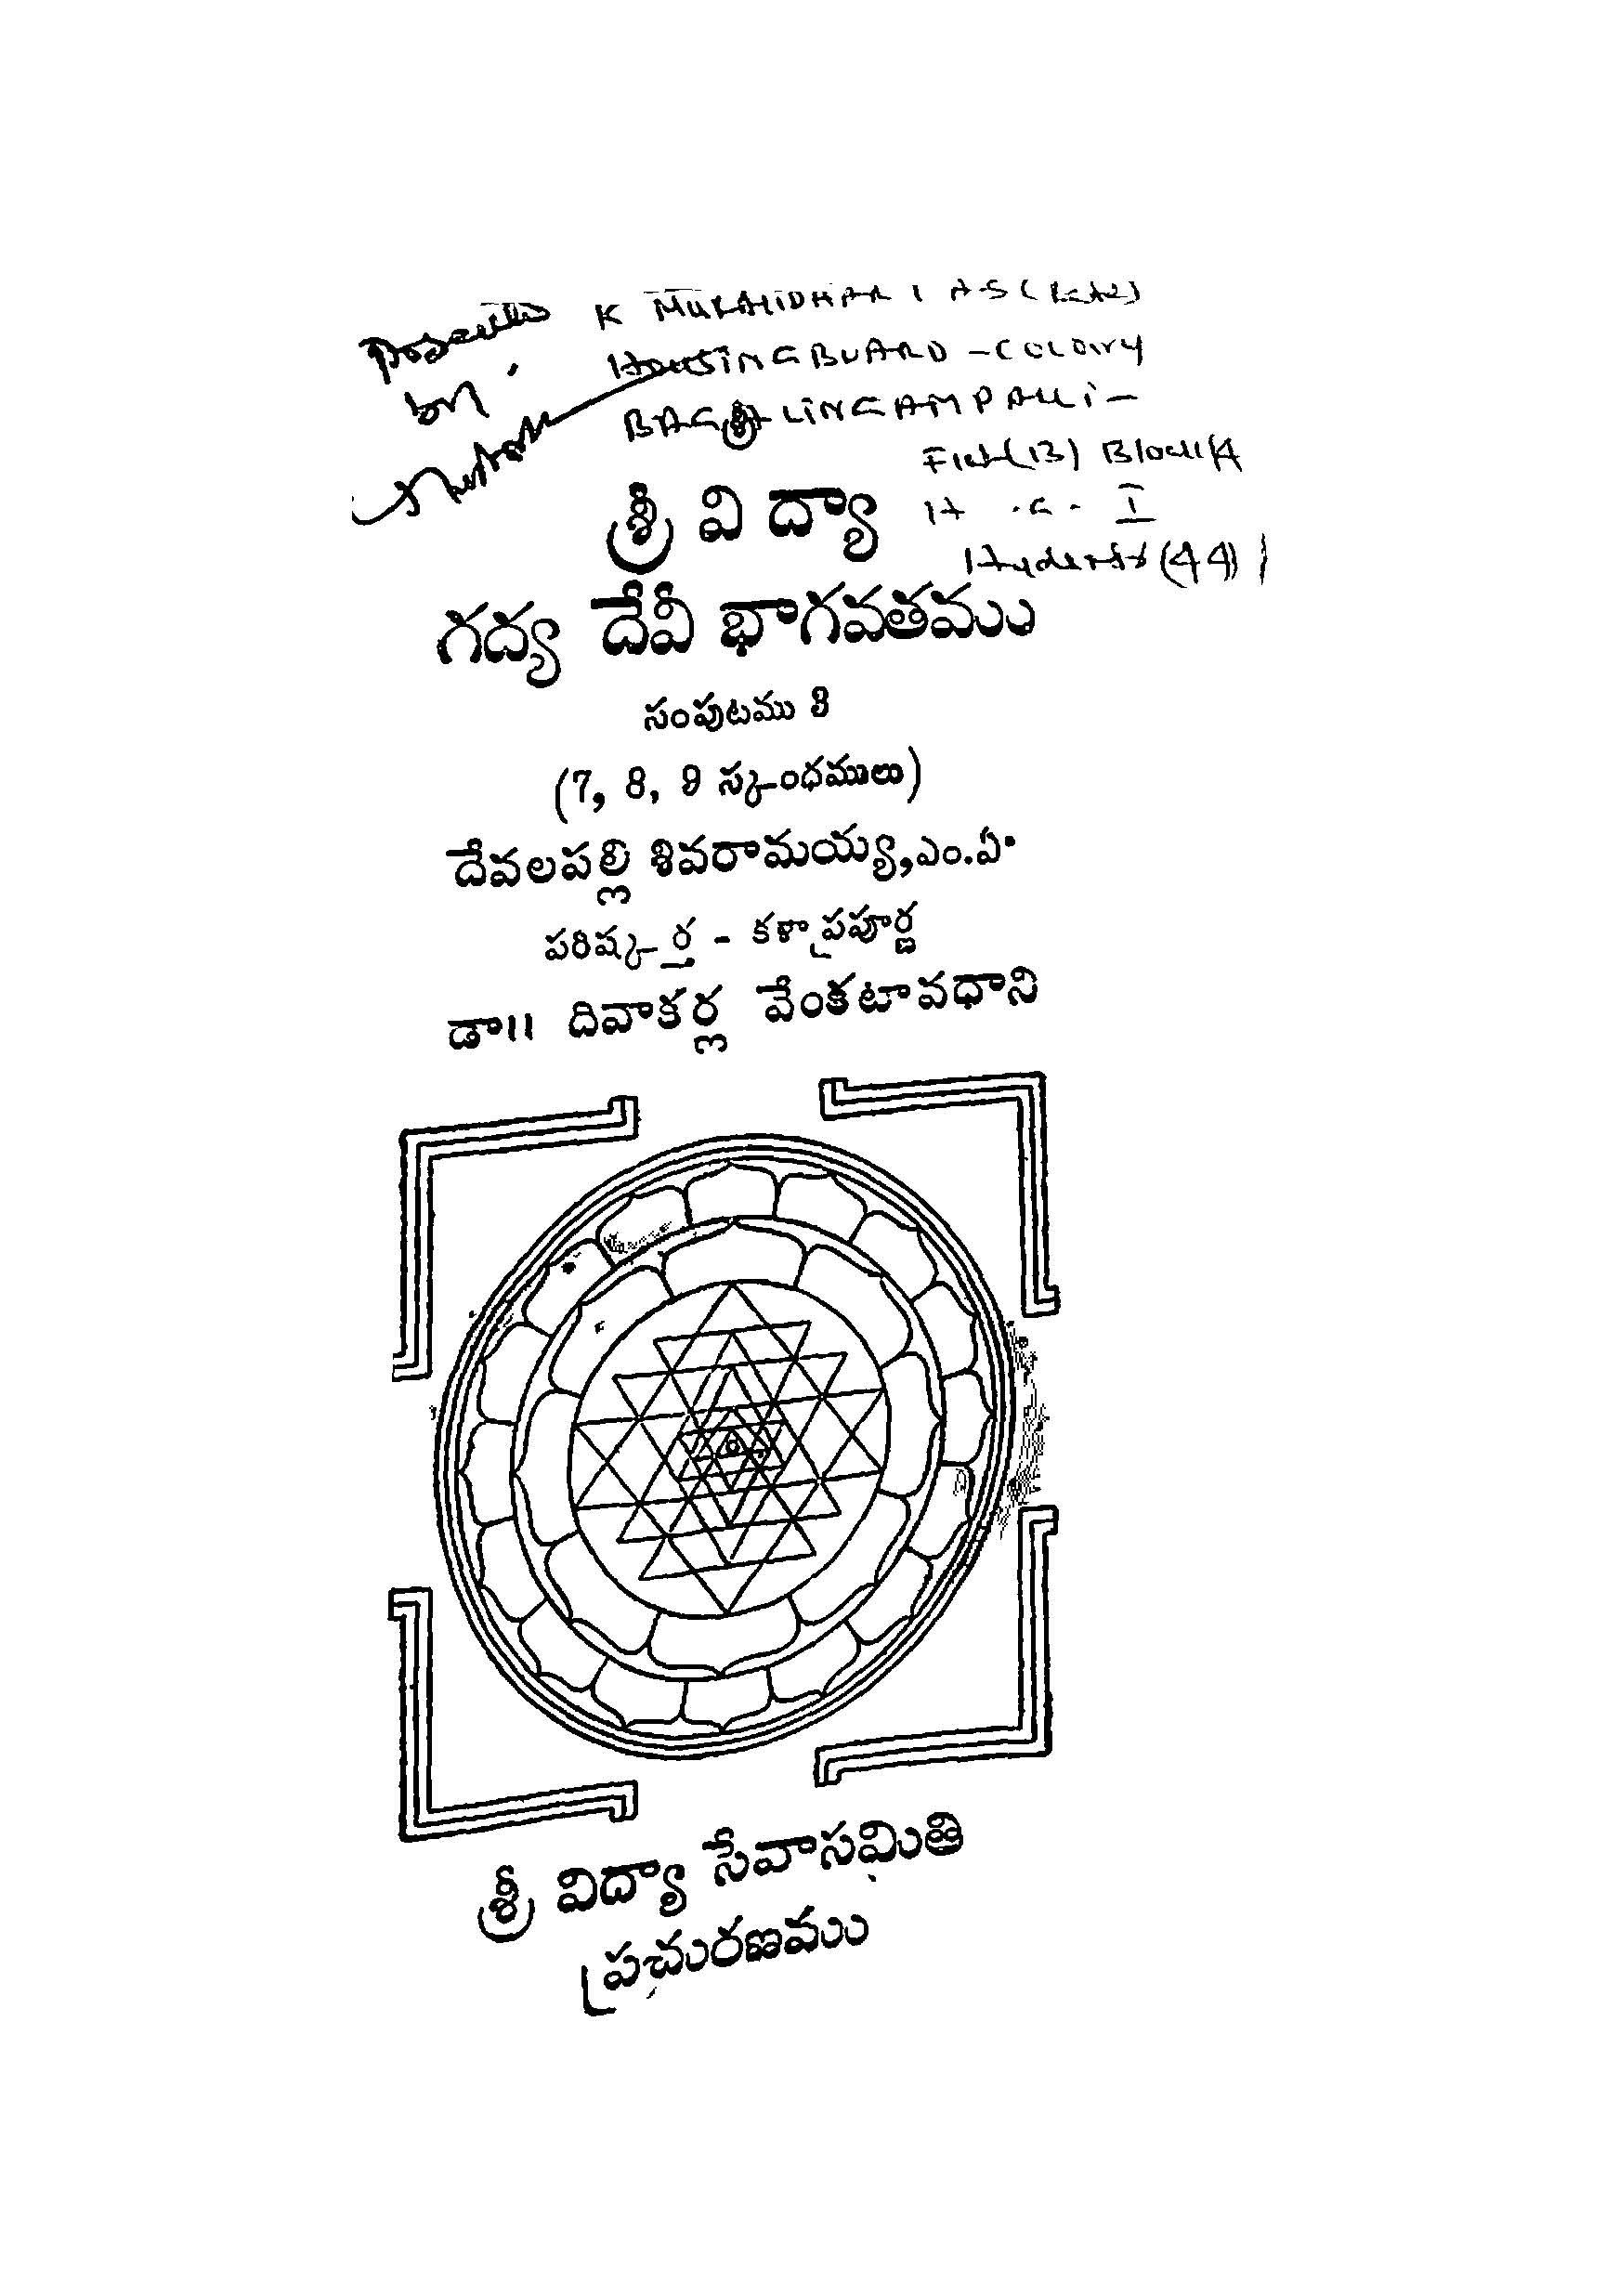 K MURALIDHAR I A S (Retd)
HOUSING BOARD - COLONY
BAGHLINGAMPALLI -
Flat (13) Block
H . G . I
(44)
శ్రీ
శ్రీ విద్యా
గద్య దేవీ భాగవతము
సంపుటము 3
(7, 8, 9 స్కంధములు)
దేవలపల్లి శివరామయ్య, ఎం.ఏ.
పరిష్కర్త - కళాప్రపూర్ణ
డా॥ దివాకర్ల వేంకటావధాని
శ్రీ విద్యా సేవాసమితి
ప్రచురణము